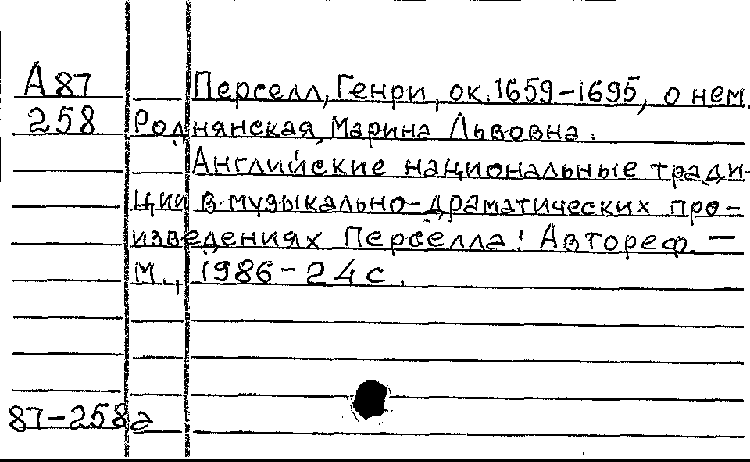 А87 Перселл, Генри, ок. 1659-1695, о нем
258 Роднянская, Марина Львовна.
Английские национальные тради-
ции в музыкально-драматических про-
изведениях Перселла: Автореф. —
М., 1986 - 24 с.
87-258а